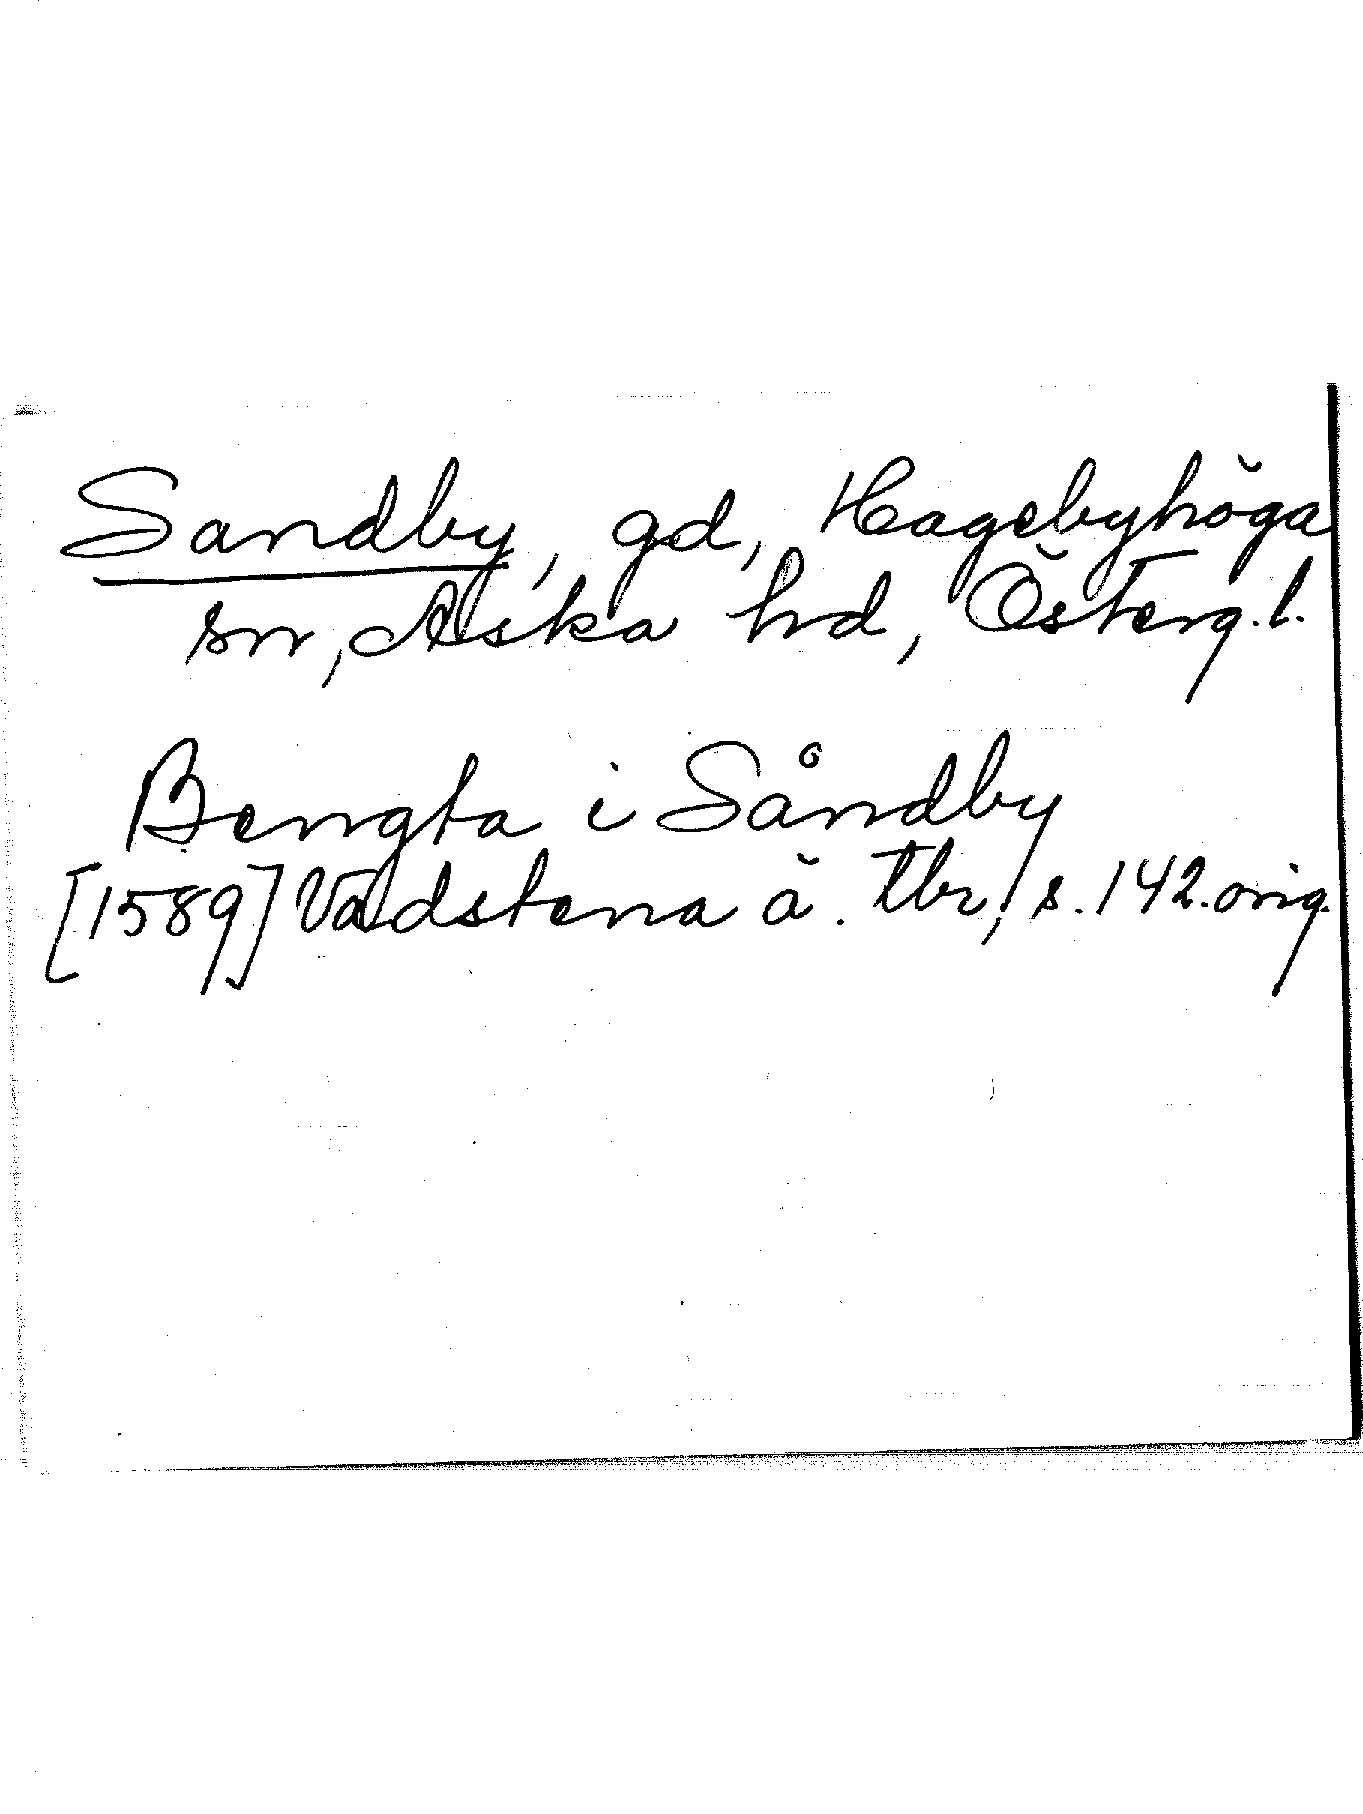 Sandby, gd, Hagebyhöga
sn, Aska hd, Österg.l.
Bengta i Såndby
[1589] Vadstena ä. tbr, s. 142. orig.